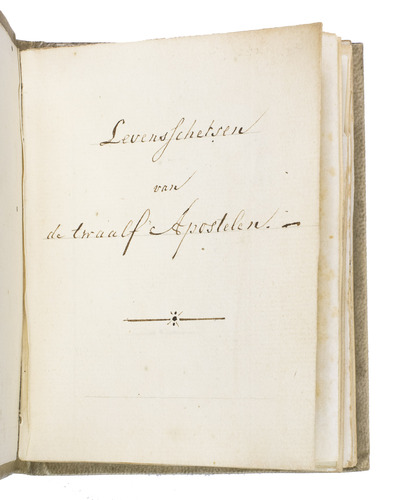 Levensschetsen
van
de twaalf Apostelen. —